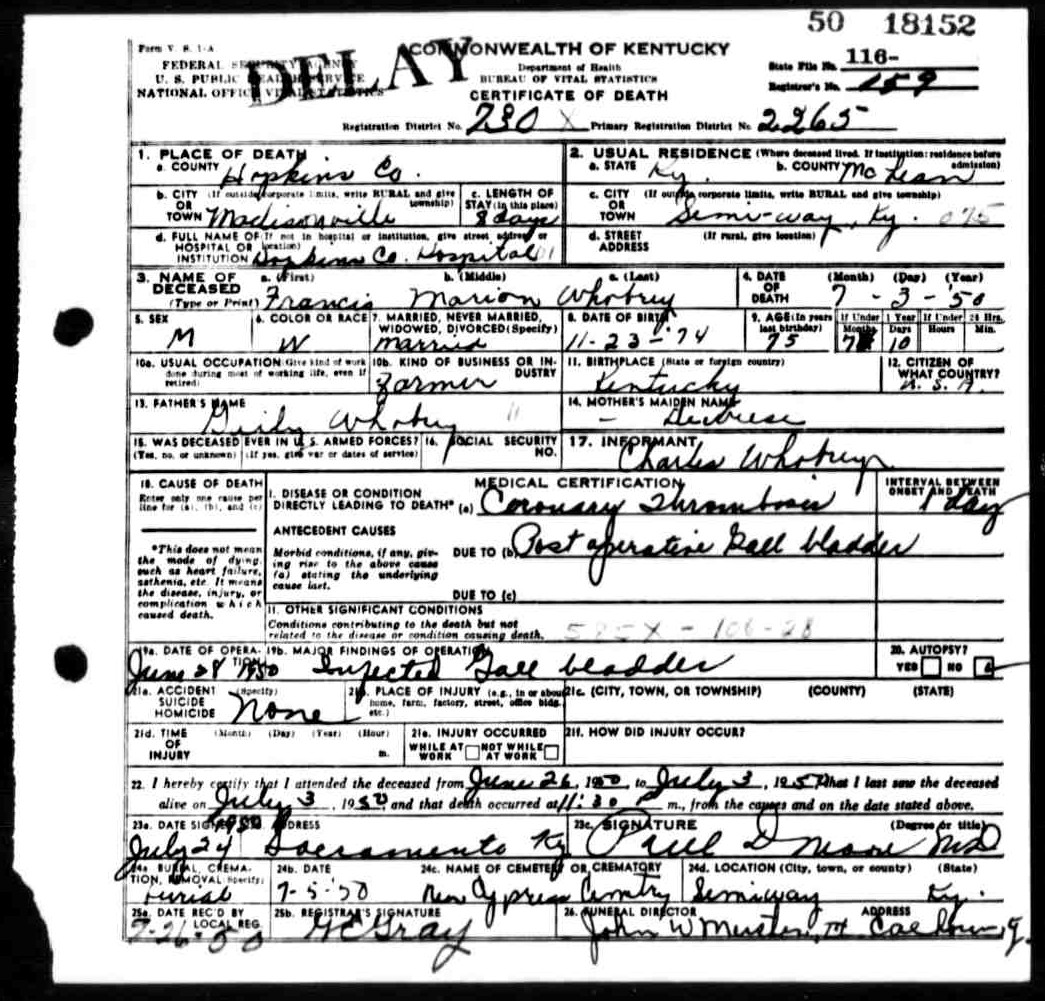 50 18152
Form V. S. 1-A
COMMONWEALTH OF KENTUCKY
FEDERAL SECURITY AGENCY
Department of Health
State File No. 116-
U. S. PUBLIC HEALTH SERVICE
BUREAU OF VITAL STATISTICS
Registrar's No. 159
NATIONAL OFFICE VITAL STATISTICS
DELAY
CERTIFICATE OF DEATH
Registration District No. 730 X Primary Registration District No. 2265
1. PLACE OF DEATH
a. COUNTY Hopkins Co.
2. USUAL RESIDENCE (Where deceased lived. If institution: residence before admission)
a. STATE Ky. b. COUNTY McLean
b. CITY (If outside corporate limits, write RURAL and give township)
OR
TOWN Madisonville
c. LENGTH OF
STAY (in this place)
8 days
c. CITY (If outside corporate limits, write RURAL and give township)
OR
TOWN Semi-way, Ky. 075
d. FULL NAME OF (If not in hospital or institution, give street address or location)
HOSPITAL OR
INSTITUTION Hopkins Co. Hospital 01
d. STREET (If rural, give location)
ADDRESS
3. NAME OF
DECEASED
(Type or Print)
a. (First) b. (Middle) c. (Last)
Francis Marion Whobrey
4. DATE
OF
DEATH
(Month) (Day) (Year)
7 - 3 - '50
5. SEX
M
6. COLOR OR RACE
W
7. MARRIED, NEVER MARRIED,
WIDOWED, DIVORCED (Specify)
married
8. DATE OF BIRTH
11-23-'74
9. AGE (In years
last birthday)
75
If Under 1 Year
Months 7 Days 10
If Under 24 Hrs.
Hours Min.
10a. USUAL OCCUPATION (Give kind of work
done during most of working life, even if
retired)
10b. KIND OF BUSINESS OR IN-
DUSTRY
Farmer
11. BIRTHPLACE (State or foreign country)
Kentucky
12. CITIZEN OF
WHAT COUNTRY?
U. S. A.
13. FATHER'S NAME
Whobrey
14. MOTHER'S MAIDEN NAME
-
15. WAS DECEASED EVER IN U. S. ARMED FORCES?
(Yes, no, or unknown) (If yes, give war or dates of service)
16. SOCIAL SECURITY
NO.
17. INFORMANT
Charles Whobrey
18. CAUSE OF DEATH
Enter only one cause per
line for (a), (b), and (c)
*This does not mean
the mode of dying,
such as heart failure,
asthenia, etc. It means
the disease, injury, or
complication which
caused death.
MEDICAL CERTIFICATION
INTERVAL BETWEEN
ONSET AND DEATH
I. DISEASE OR CONDITION
DIRECTLY LEADING TO DEATH* (a) Coronary Thrombosis 1 day
ANTECEDENT CAUSES
Morbid conditions, if any, giv-
ing rise to the above cause
(a) stating the underlying
cause last.
DUE TO (b) Post operative Gall bladder
DUE TO (c)
11. OTHER SIGNIFICANT CONDITIONS
Conditions contributing to the death but not
related to the disease or condition causing death.
585X - 106-28
19a. DATE OF OPERA-
TION
June 28 1950
19b. MAJOR FINDINGS OF OPERATION
Infected Gall bladder
20. AUTOPSY?
YES NO
21a. ACCIDENT (Specify)
SUICIDE
HOMICIDE None
21b. PLACE OF INJURY (e.g., in or about
home, farm, factory, street, office bldg.
etc.)
21c. (CITY, TOWN, OR TOWNSHIP) (COUNTY) (STATE)
21d. TIME (Month) (Day) (Year) (Hour)
OF
INJURY m.
21e. INJURY OCCURRED
WHILE AT WORK NOT WHILE AT WORK
21f. HOW DID INJURY OCCUR?
22. I hereby certify that I attended the deceased from June 26, 1950, to July 3, 1950, that I last saw the deceased
alive on July 3, 1950, and that death occurred at 11:30 P m., from the causes and on the date stated above.
23a. DATE SIGNED
1950
July 24
ADDRESS
Sacramento Ky
23c. SIGNATURE (Degree or title)
Paul D Moore MD
24a. BURIAL, CREMA-
TION, REMOVAL (Specify)
burial
24b. DATE
7-5-'50
24c. NAME OF CEMETERY OR CREMATORY
New Cypress Cemetry
24d. LOCATION (City, town, or county) (State)
Semiway Ky.
25a. DATE REC'D BY
LOCAL REG.
7-26-50
25b. REGISTRAR'S SIGNATURE
Gray
26. FUNERAL DIRECTOR ADDRESS
John W Calhoun, Ky.